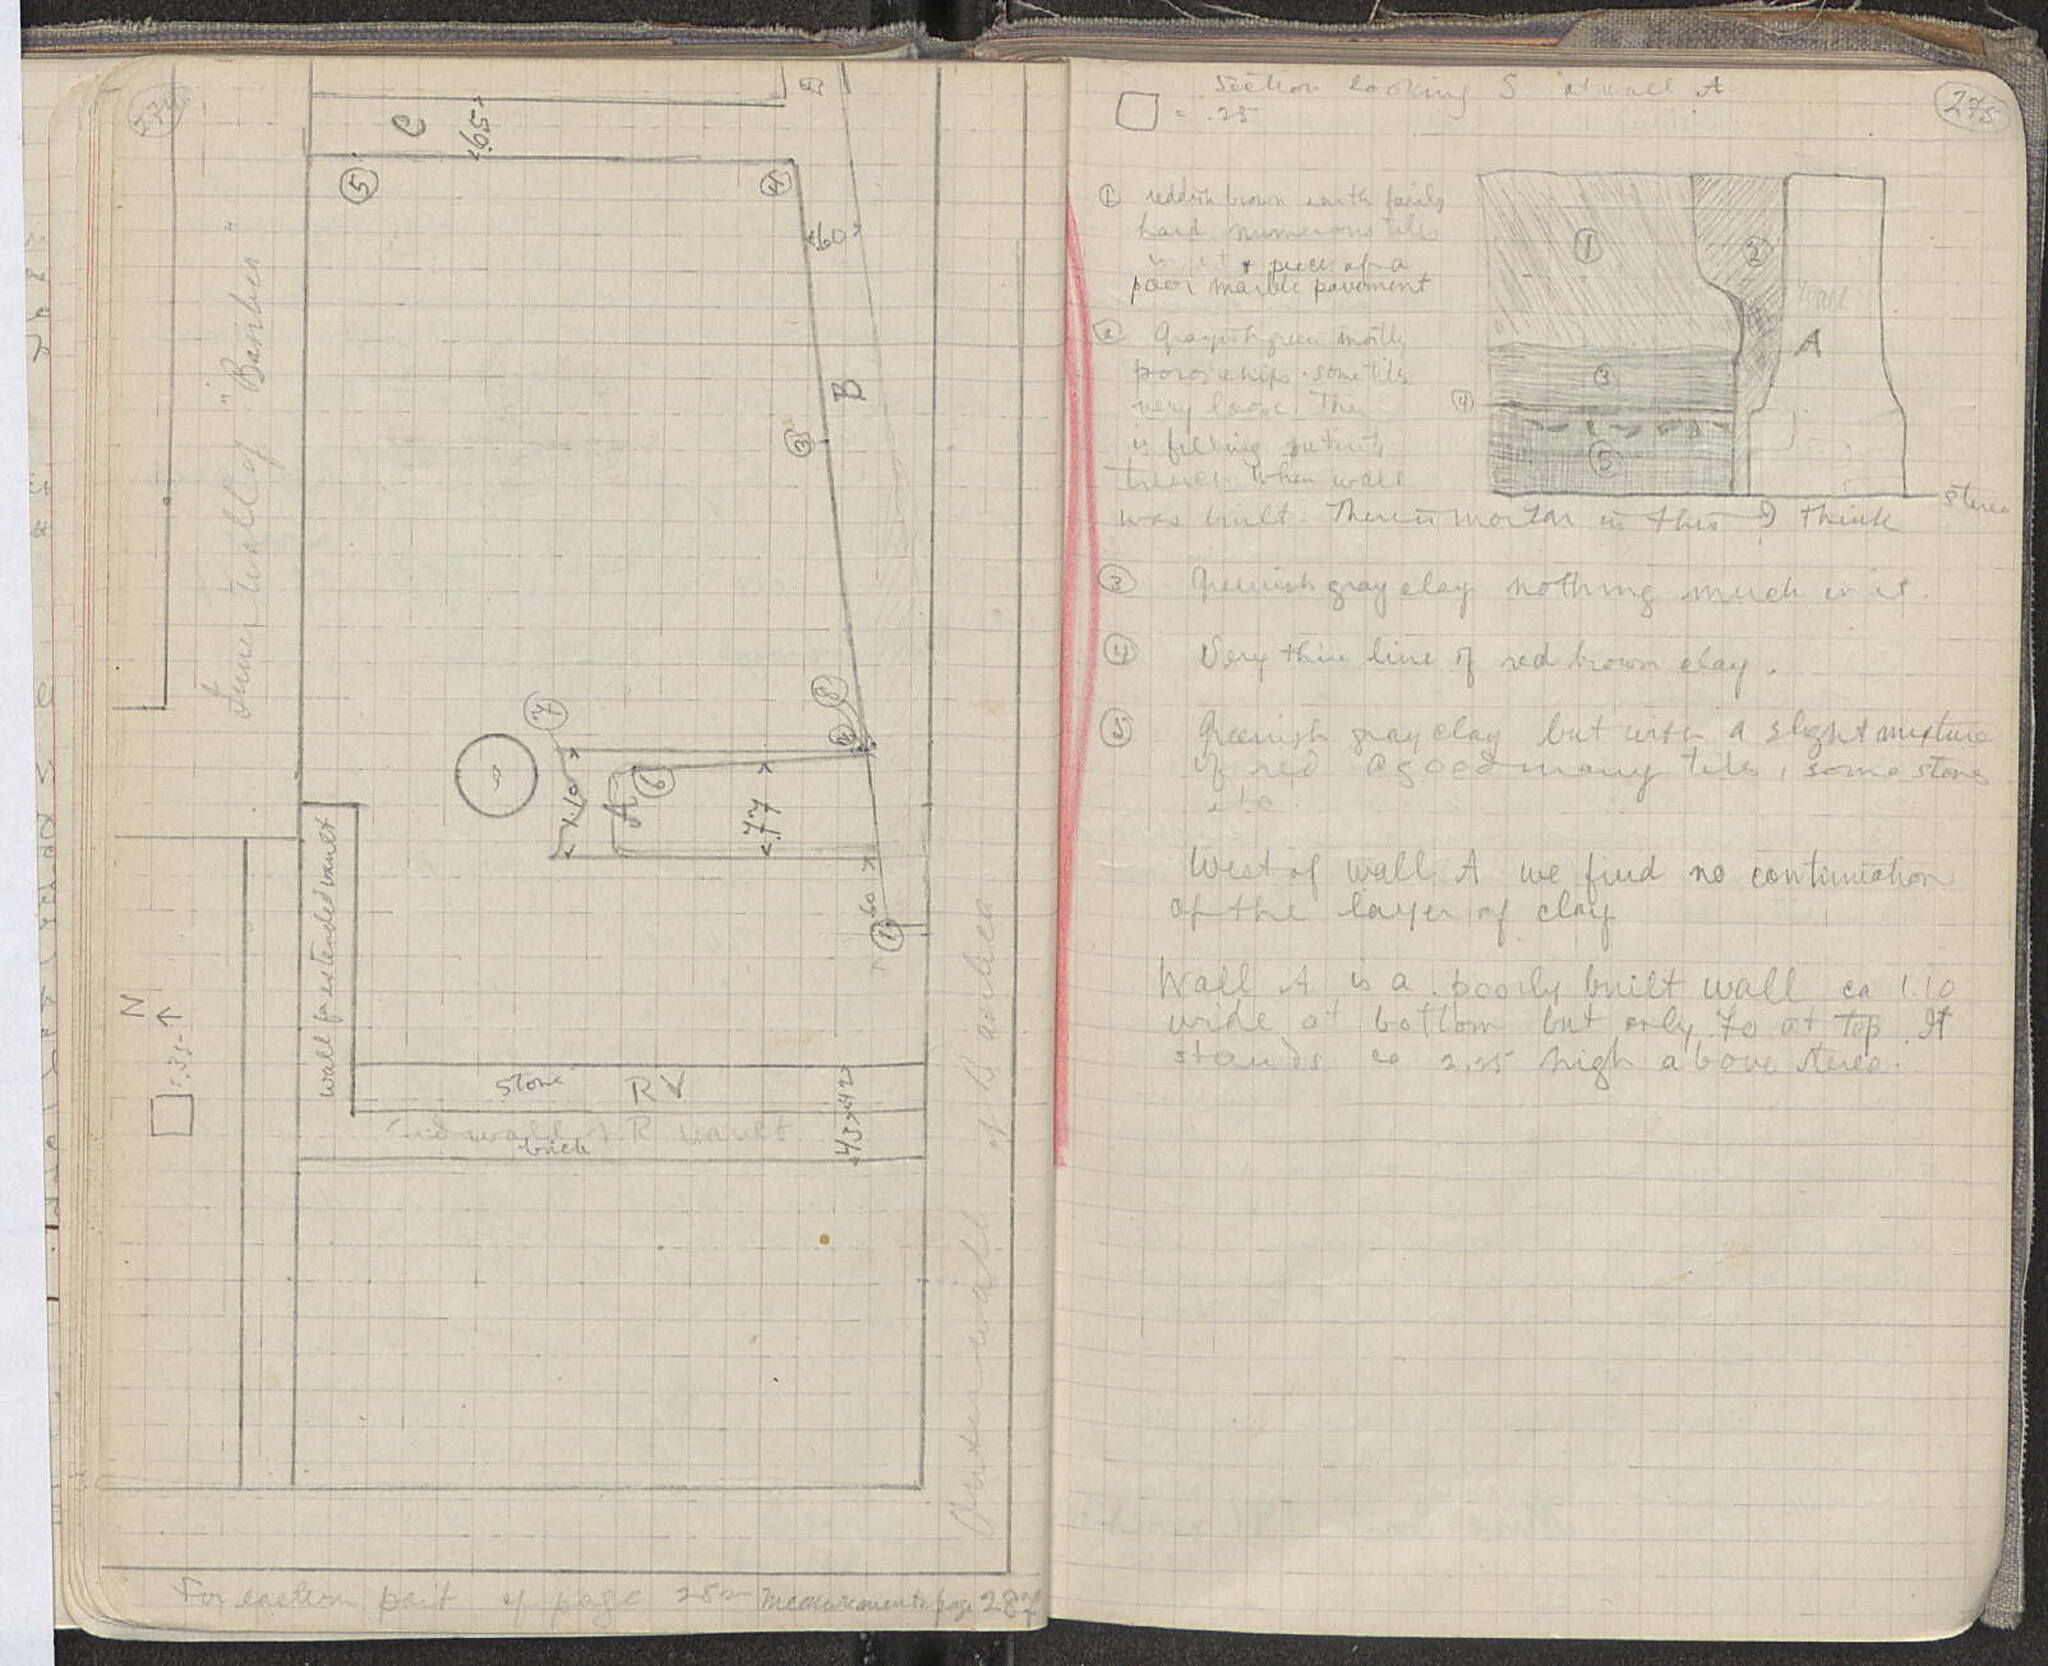 C
.65
B
5
4
.60
"Basilica"
Inner wall of
B
3
8
7
2
5
1.10
A
6
.77
.60
1
wall for extended vault
N
= .35
Stone
RV
.42
wall R vault
brick
.43
Outer wall of Basilica
For eastern part cf page 282 measurements page 287
275
Section looking S at wall A
= .25
1 reddish brown earth fairly
hard numerous tiles
in it + piece of a
poor marble pavement
2 Grayish green mostly
poros chips. some tiles
very loose. This
is filling put into
trench when wall
was built. There is mortar in this I think
1
2
Wall
A
3
4
5
stereo
3 Greenish gray clay nothing much in it.
4 Very thin line of red brown clay.
5 Greenish gray clay but with a slight mixture
of red A good many tiles, some stones
etc.
West of wall A we find no continuation
of the layer of clay
Wall A is a poorly built wall ca 1.10
wide at bottom but only .70 at top. It
stands ca 2.25 high above stereo.